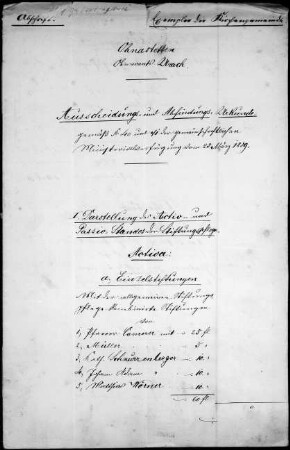 Abschrift. Exemplar der Kirchengemeinde
Ohnastetten
Oberamts Urach
Ausscheidungs- und Abfindungs-Urkunde
gemäß Art. und der gemeinschaftlichen
Ministerialverfügung vom 20. März 1889.
1. Darstellung des Activ- und
Passiv-Standes der Stiftungspflege.
Activa:
a. Einzelstiftungen
Mit der allgemeinen Stiftungs-
pflege kombinierte Stiftungen
von
1, Pfarrer Camerer mit - 25 fl
2, Müller " 5.
3, Kath. Schwarzenberger " 10.
4, Johann Adam " 10.
5, Matthäus Wörner " 10.
60 fl.